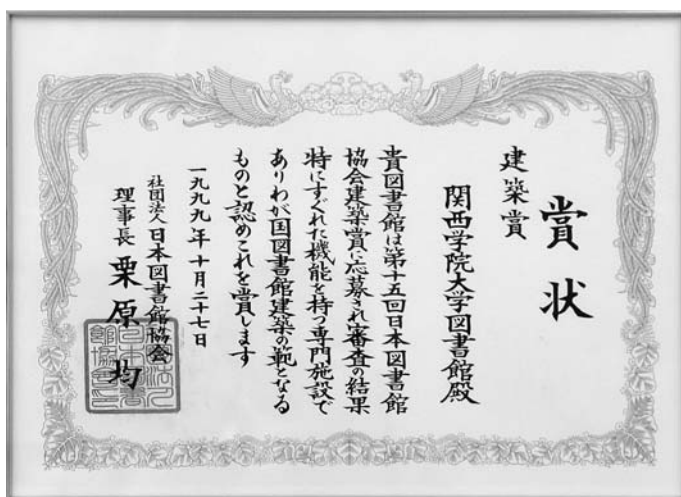 賞状
建築賞
関西学院大学図書館殿
貴図書館は第十五回日本図書館
協会建築賞に応募され審査の結果
特にすぐれた機能を持つ専門施設で
ありわが国図書館建築の範となる
ものと認めこれを賞します
一九九九年十月二十七日
社団法人日本図書館協会
理事長 栗原均